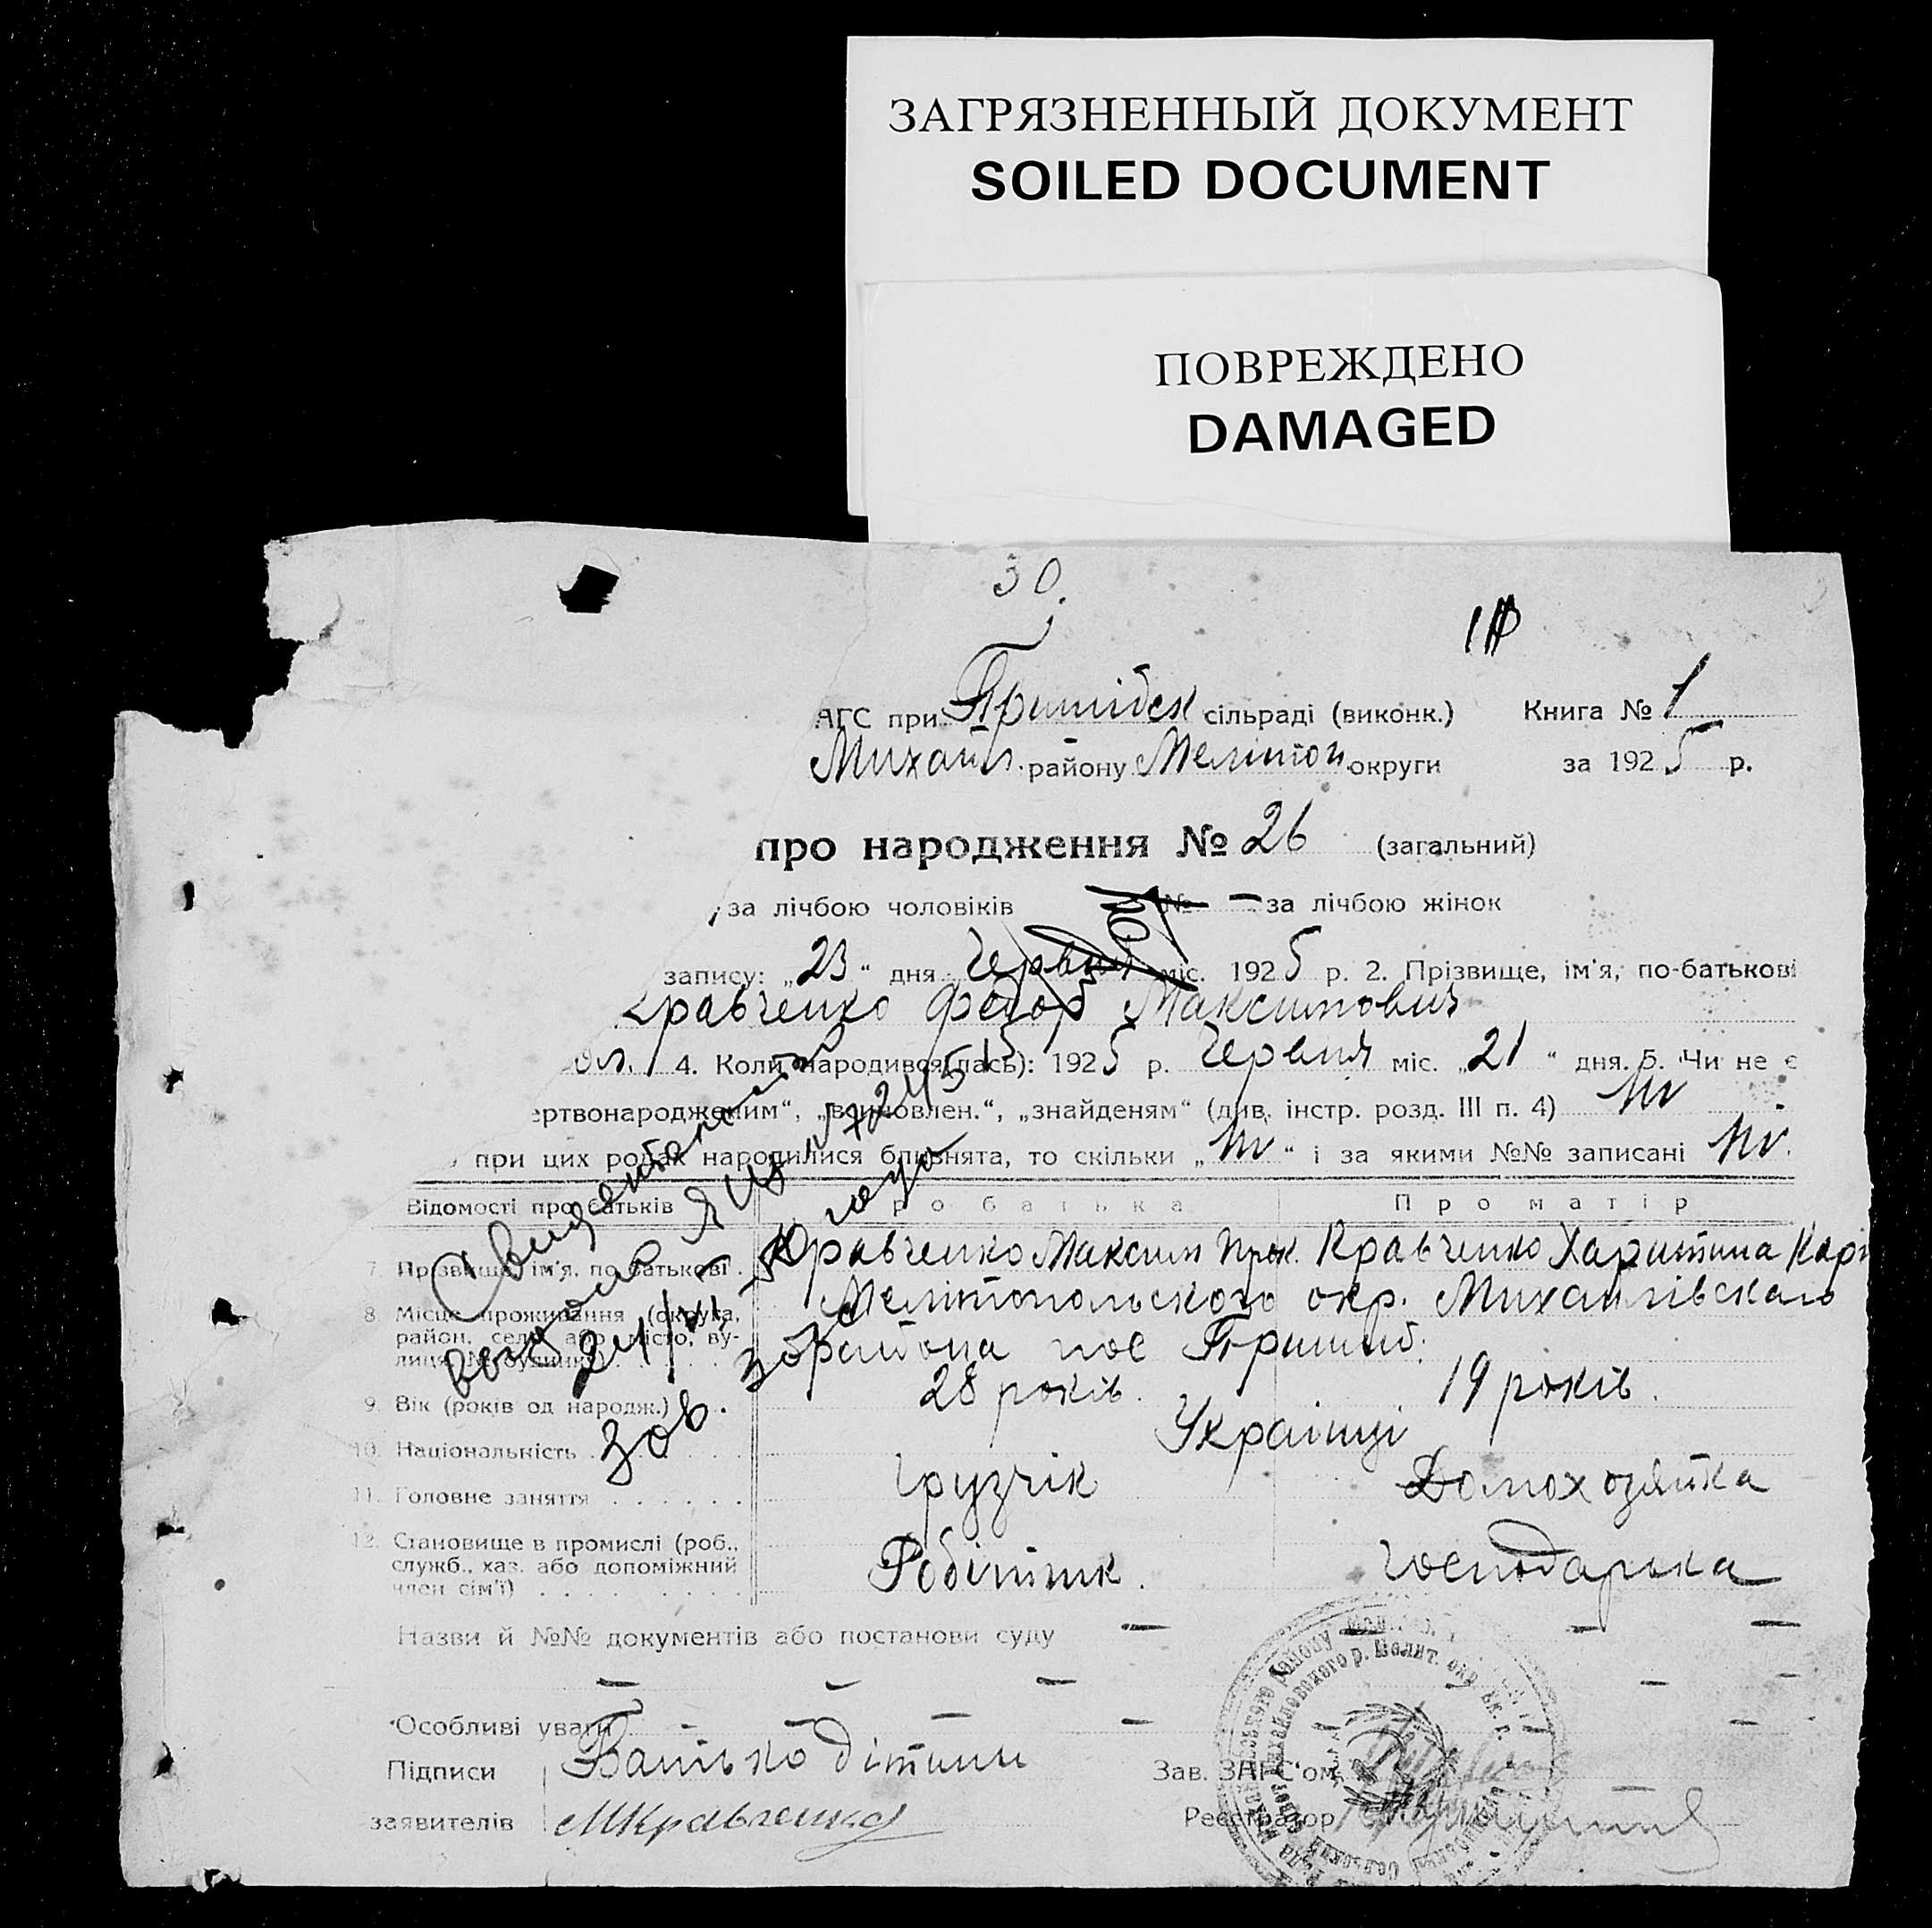 ЗАГРЯЗНЕННЫЙ ДОКУМЕНТ
SOILED DOCUMENT
ПОВРЕЖДЕНО
DAMAGED
30.
АГС при Пришибск сільраді (виконк.) Книга № 1
Михайл. району Мелітоп. округи за 1925 р.
про народження № 26 (загальний)
за лічбою чоловіків № — за лічбою жінок
запису: „23“ дня Червня міс. 1925 р. 2. Прізвище, ім'я, по-батькові
Кравченко Федор Максимович
4. Коли народився(лась): 1925 р. Червня міс. „21“ дня. 5. Чи не є
ертвонародженим“, „вимовлен.“, „знайденям“ (див. інстр. розд. III п. 4) ні
при цих родах народилися близнята, то скільки „ні“ і за якими №№ записані ні.
Відомості про батьків Про батька Про матір
7. Прізвище, ім'я, по батькові. Кравченко Максим Прок. Кравченко Харитина Карп
8. Місце проживання (округа, район, село або місто, вулиця, № будинку) Мелітопольского окр. Михайлівскаго
района пос Пришиб.
9. Вік (років од народж.) 28 років. 19 років.
10. Національність Українці
11. Головне заняття грузчік Домохозяйка
12. Становище в промислі (роб., служб., хаз. або допоміжний член сім'ї) Робітник. господарька
Назви й №№ документів або постанови суду — — —
— — — —
Особливі уваги — — — — —
Підписи Батько дітини Зав. ЗАГС'ом
заявителів МКравченко Реєстратор